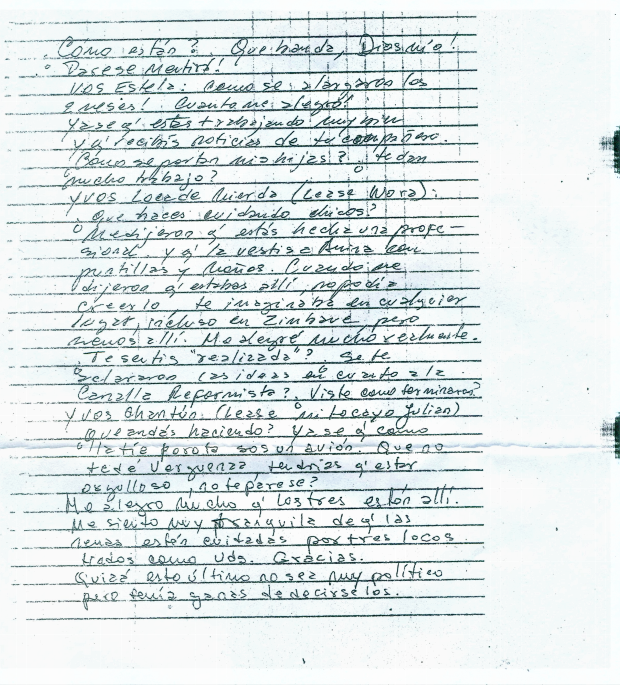 ¿Cómo están? Que banda, Dios mío!
Parese mentira!
Vos Estela: como se alargaron los
meses! Cuanto me alegró!
Ya se q' estás trabajando muy bien
y q' recibís noticias de tu compañero.
¿Cómo se portan mis hijas? te dan
mucho trabajo?
Y vos Loca de mierda (Lease Nora):
¿Que haces cuidando chicos?
Me dijeron q' estás hecha una profe-
sional y q' la vestis a Anina con
puntillas y moños. Cuando me
dijeron q' estabas allí, no podía
creerlo, te imaginaba en cualquier
lugar, incluso en Zinbave pero
menos allí. Me alegré mucho realmente.
¿Te sentís "realizada"? Se te
aclararon las ideas en cuanto a la
Canalla Reformista? Viste como terminaron?
Y vos Chantún. (Lease mi tocayo Julian)
Que andás haciendo? Ya se q' como
"Ha tie" porota sos un avión. Que no
te dé verguenza, tendrías q' estar
orgulloso, no te parese?
Me alegro mucho q' los tres estén allí.
Me siento muy tranquila de q' las
nenas estén cuidadas por tres locos
lindos como Uds. Gracias.
Quizá esto último no sea muy político
pero tenía ganas de decirselos.